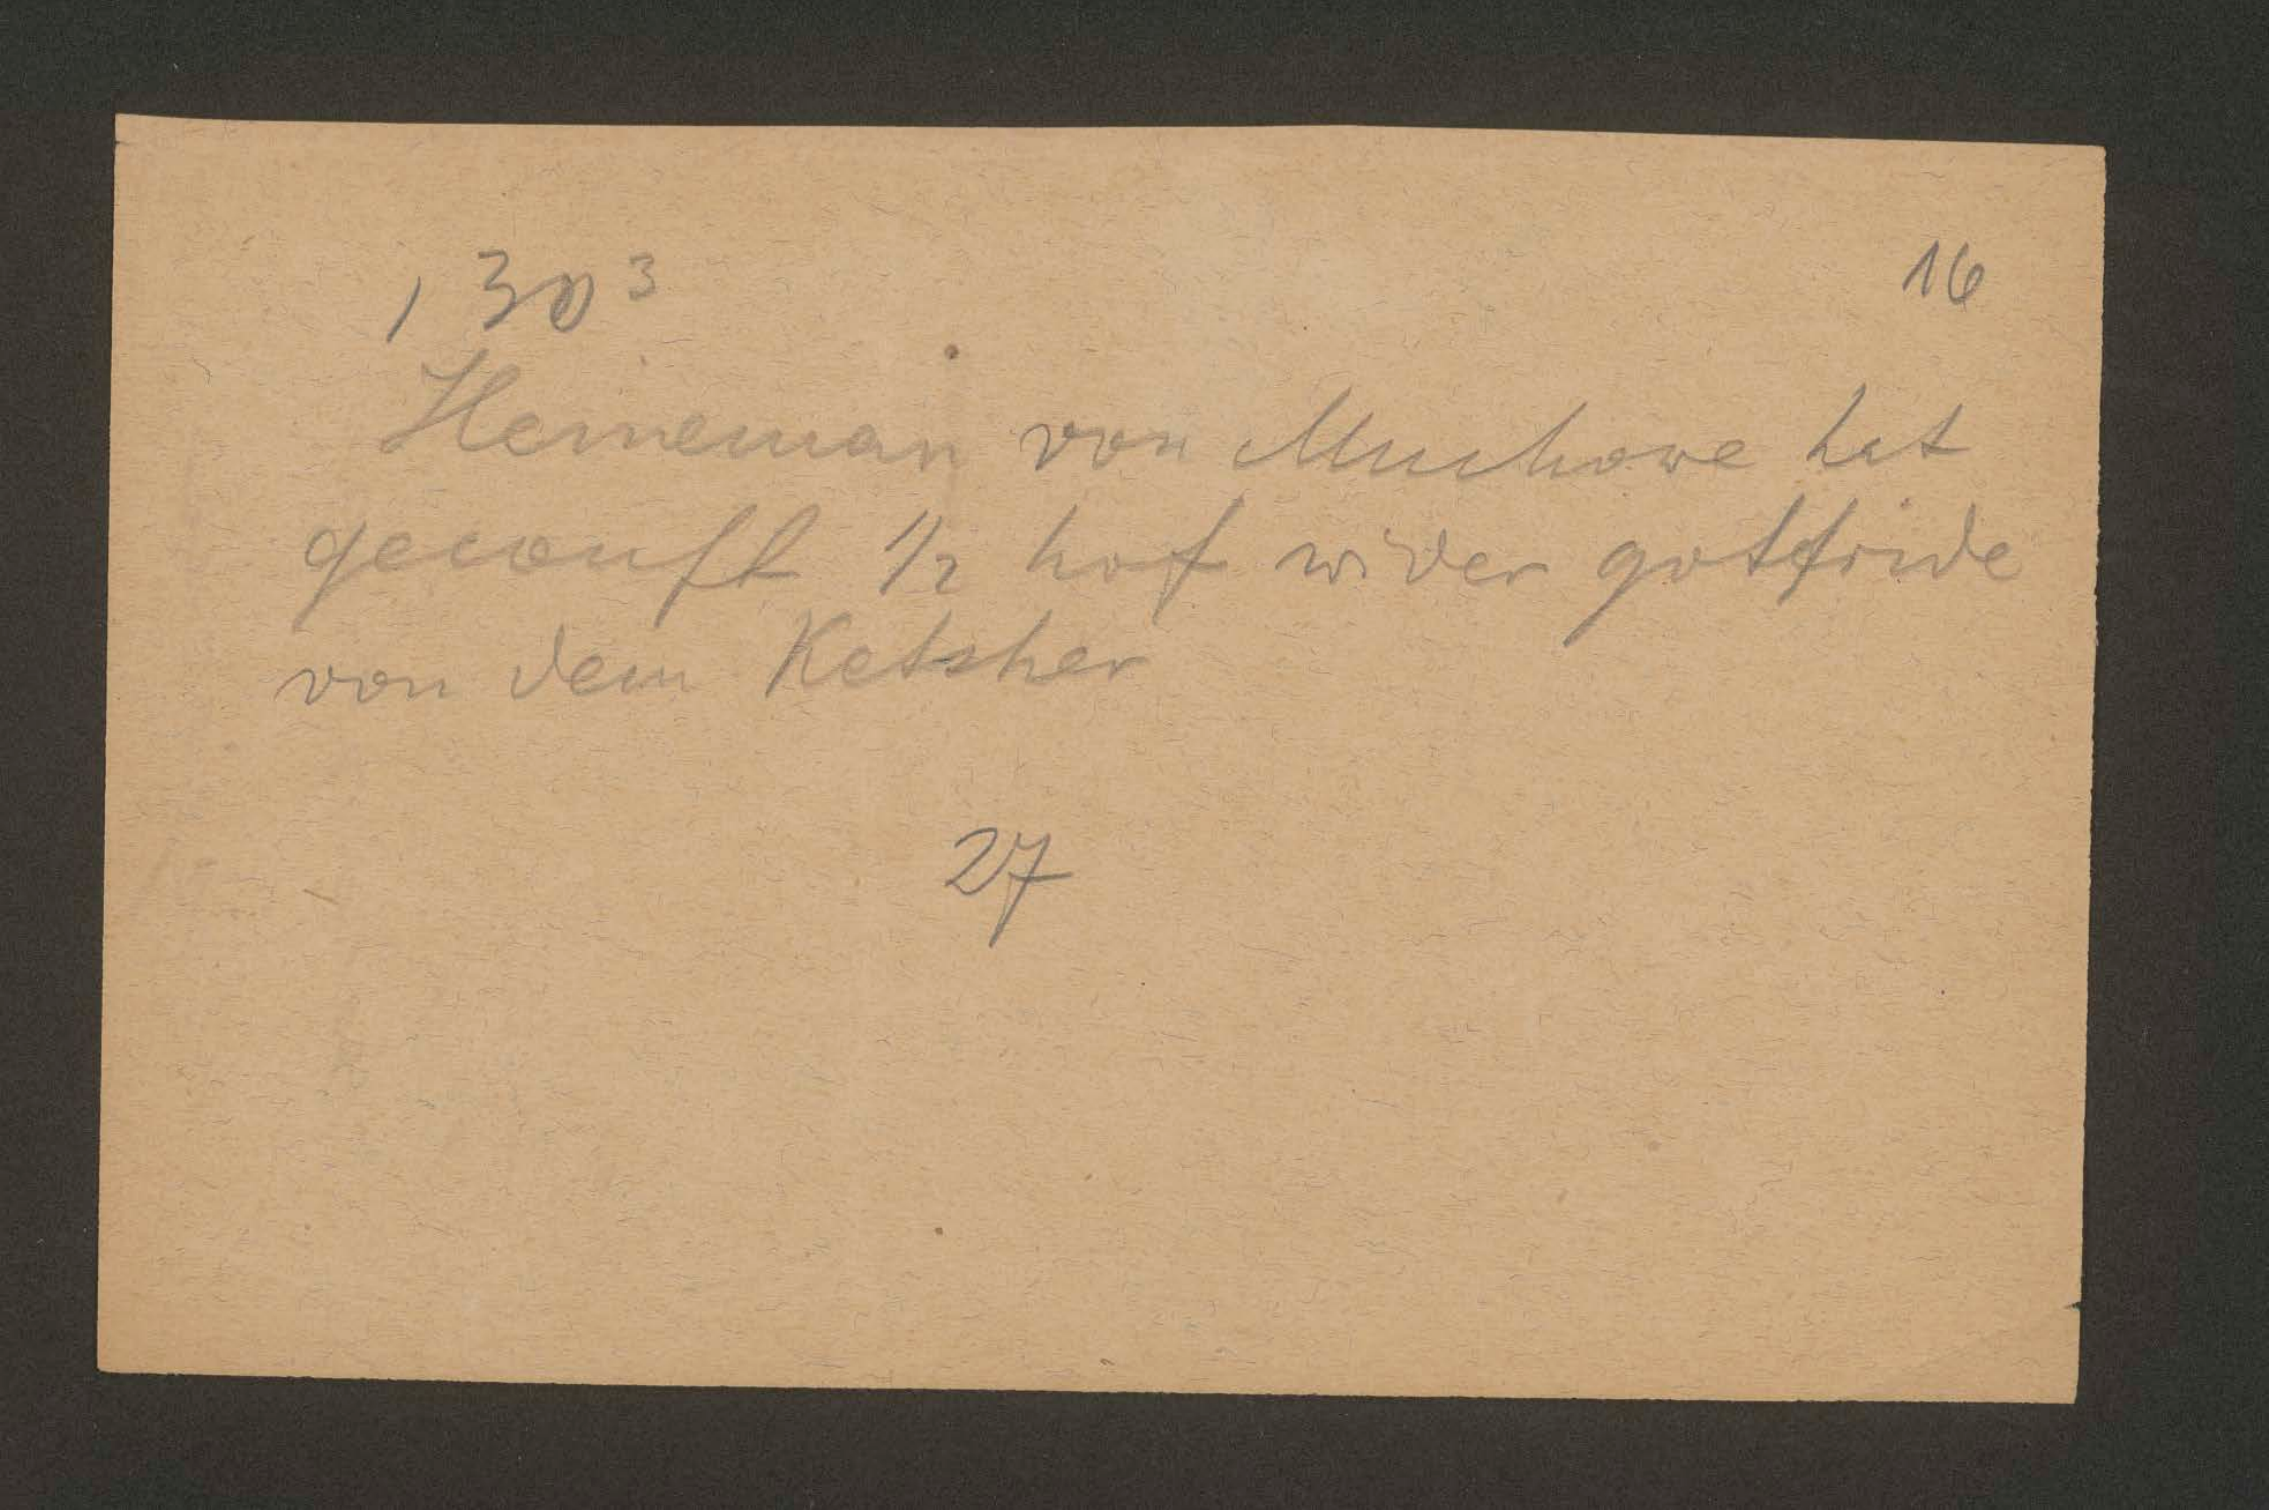 1303 16
Heineman von Muchowe hat
gecouft 1/2 hof wider gotfride
von dem Ketscher
27